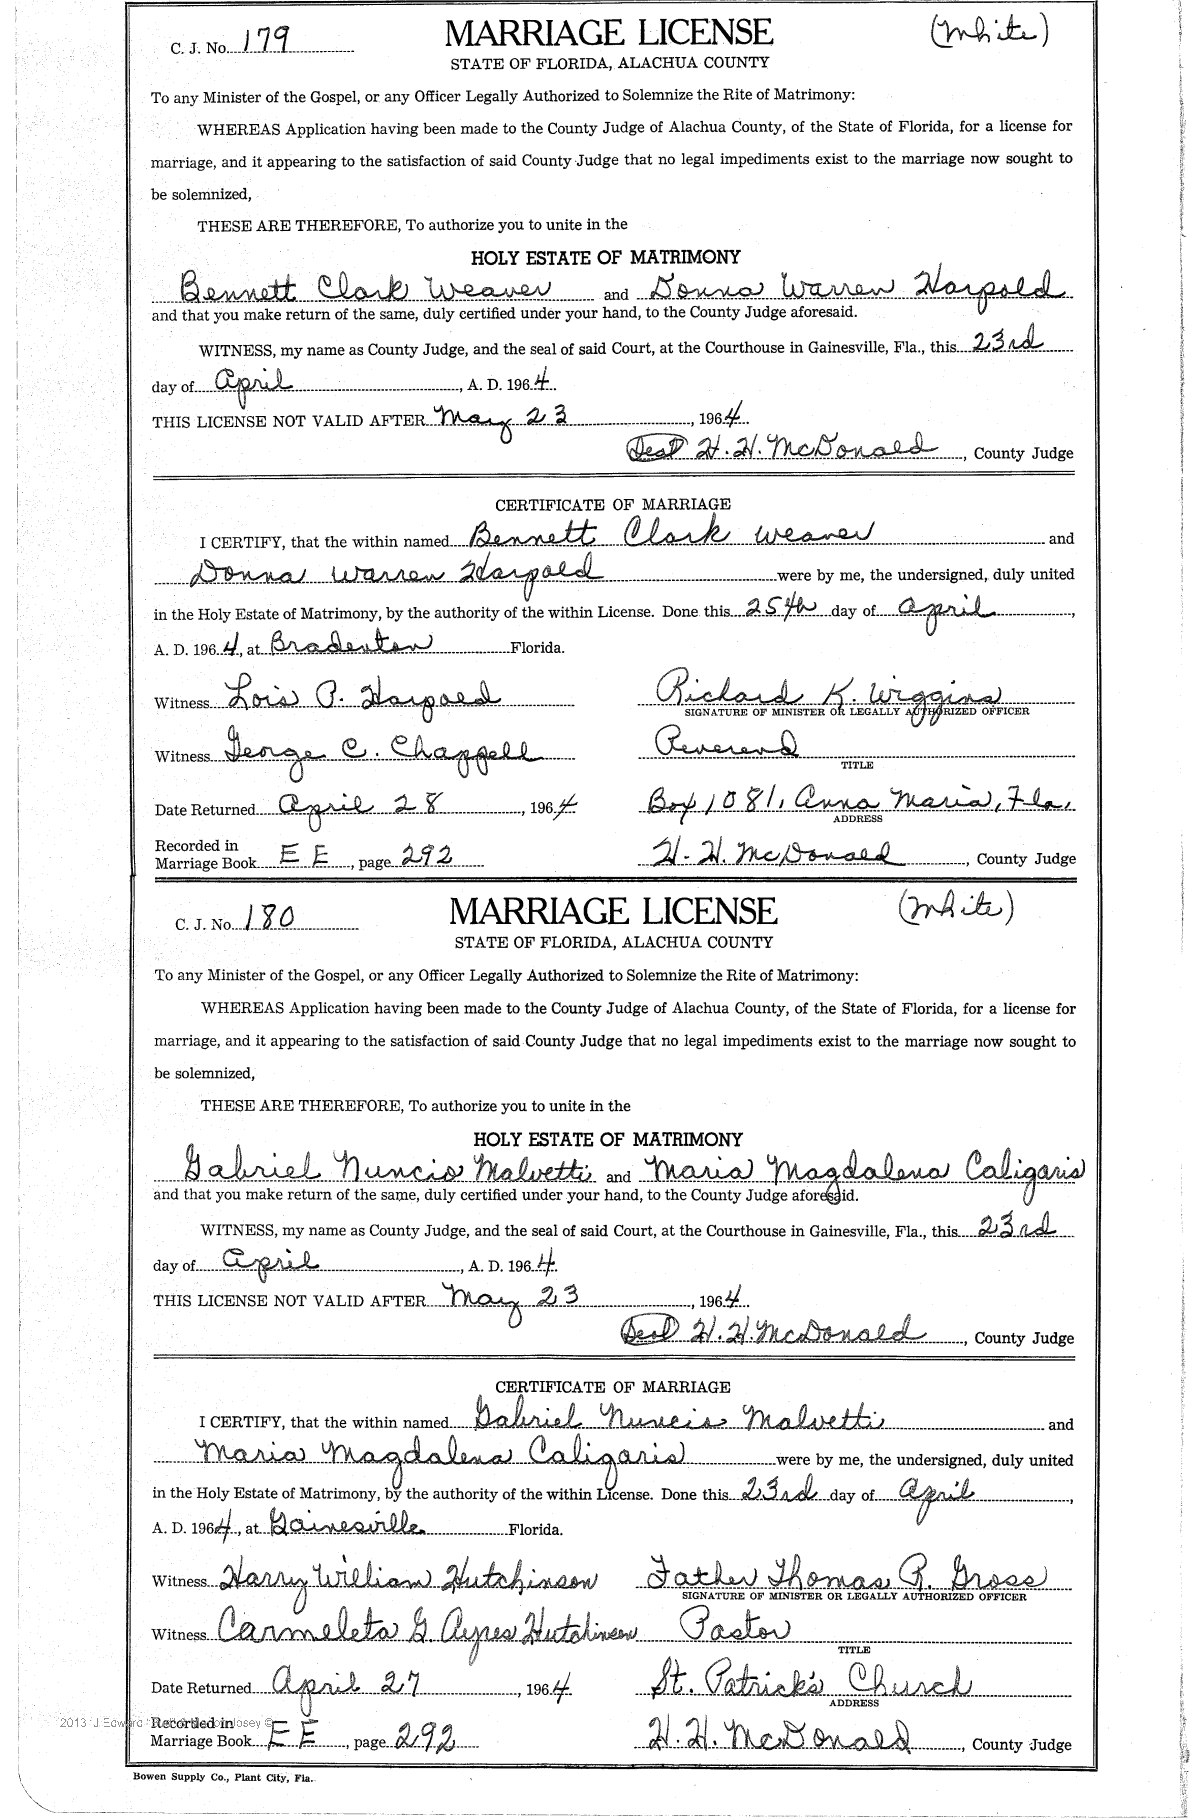 C. J. No. 179 MARRIAGE LICENSE (White)
STATE OF FLORIDA, ALACHUA COUNTY
To any Minister of the Gospel, or any Officer Legally Authorized to Solemnize the Rite of Matrimony:
WHEREAS Application having been made to the County Judge of Alachua County, of the State of Florida, for a license for
marriage, and it appearing to the satisfaction of said County Judge that no legal impediments exist to the marriage now sought to
be solemnized,
THESE ARE THEREFORE, To authorize you to unite in the
HOLY ESTATE OF MATRIMONY
Bennett Clark Weaver and Donna Warren Harpold
and that you make return of the same, duly certified under your hand, to the County Judge aforesaid.
WITNESS, my name as County Judge, and the seal of said Court, at the Courthouse in Gainesville, Fla., this 23rd
day of April, A. D. 1964.
THIS LICENSE NOT VALID AFTER May 23, 1964.
(Seal) H. H. McDonald, County Judge
CERTIFICATE OF MARRIAGE
I CERTIFY, that the within named Bennett Clark Weaver and
Donna Warren Harpold were by me, the undersigned, duly united
in the Holy Estate of Matrimony, by the authority of the within License. Done this 25th day of April,
A. D. 1964, at Bradenton Florida.
Witness Lois P. Harpold Richard K. Wiggins
SIGNATURE OF MINISTER OR LEGALLY AUTHORIZED OFFICER
Witness George C. Chappell Reverend
TITLE
Date Returned April 28, 1964 Box 1081, Anna Maria, Fla.
ADDRESS
Recorded in
Marriage Book E E, page 292 H. H. McDonald, County Judge
C. J. No. 180 MARRIAGE LICENSE (White)
STATE OF FLORIDA, ALACHUA COUNTY
To any Minister of the Gospel, or any Officer Legally Authorized to Solemnize the Rite of Matrimony:
WHEREAS Application having been made to the County Judge of Alachua County, of the State of Florida, for a license for
marriage, and it appearing to the satisfaction of said County Judge that no legal impediments exist to the marriage now sought to
be solemnized,
THESE ARE THEREFORE, To authorize you to unite in the
HOLY ESTATE OF MATRIMONY
Gabriel Nuncio Malvetti and Maria Magdalena Caligaris
and that you make return of the same, duly certified under your hand, to the County Judge aforesaid.
WITNESS, my name as County Judge, and the seal of said Court, at the Courthouse in Gainesville, Fla., this 23rd
day of April, A. D. 1964.
THIS LICENSE NOT VALID AFTER May 23, 1964.
(Seal) H. H. McDonald, County Judge
CERTIFICATE OF MARRIAGE
I CERTIFY, that the within named Gabriel Nuncio Malvetti and
Maria Magdalena Caligaris were by me, the undersigned, duly united
in the Holy Estate of Matrimony, by the authority of the within License. Done this 23rd day of April,
A. D. 1964, at Gainesville Florida.
Witness Harry William Hutchinson Father Thomas P. Gross
SIGNATURE OF MINISTER OR LEGALLY AUTHORIZED OFFICER
Witness Carmeleta G. Ayres Hutchinson Pastor
TITLE
Date Returned April 27, 1964. St. Patrick's Church
ADDRESS
2013 J Edward Josey ©
Recorded in
Marriage Book E E, page 292 H. H. McDonald, County Judge
Bowen Supply Co., Plant City, Fla.